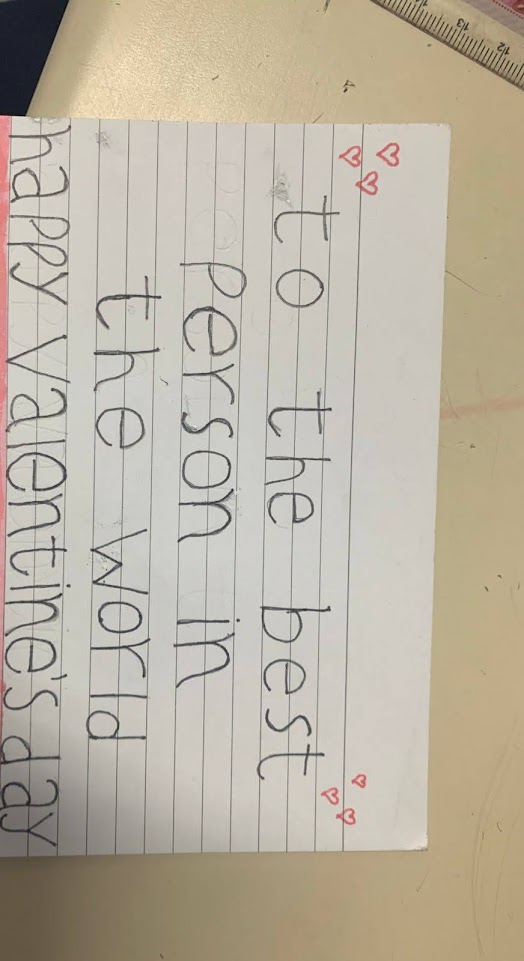 to the best
person in
the world
happy valentine's day
12
13